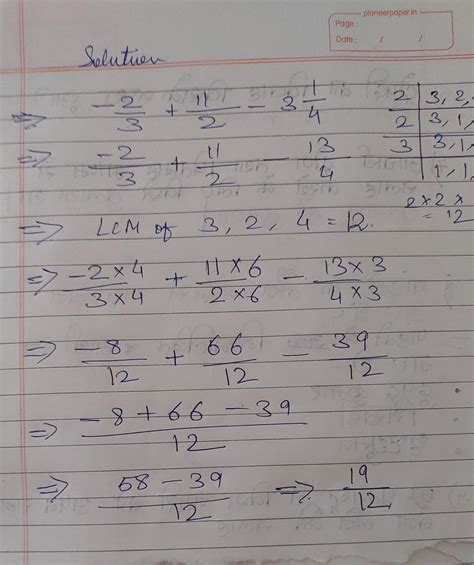 pioneerpaper.in
Page :
Date : / /
Solution
⇒ -2/3 + 11/2 - 3 1/4
⇒ -2/3 + 11/2 - 13/4
2 | 3, 2,
2 | 3, 1,
3 | 3, 1,
1, 1,
2×2×
= 12
⇒ LCM of 3, 2, 4 = 12.
⇒ -2×4/3×4 + 11×6/2×6 - 13×3/4×3
⇒ -8/12 + 66/12 - 39/12
⇒ -8+66-39/12
⇒ 58-39/12 ⇒ 19/12